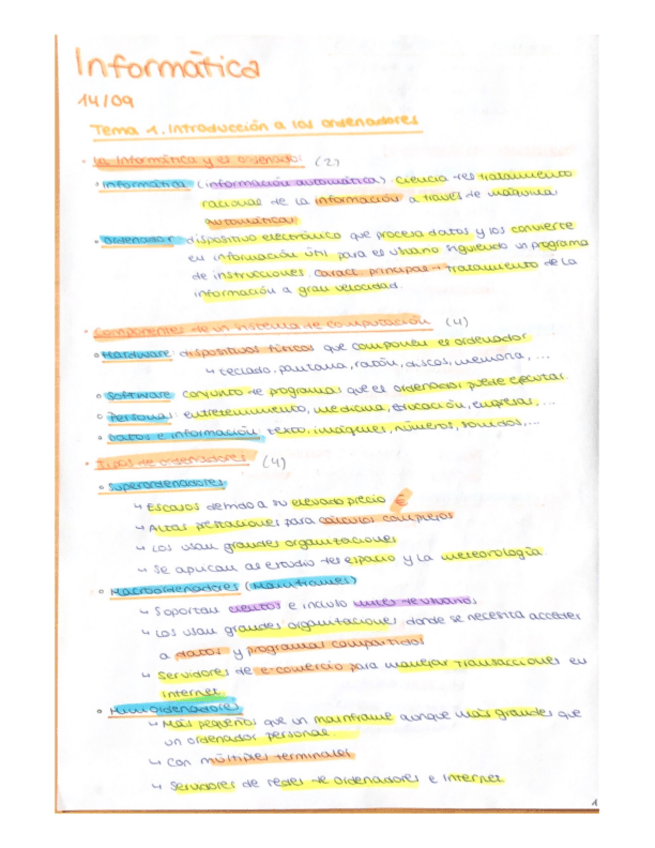 Informática
14/09
Tema 1. Introducción a los ordenadores
• La Informática y el ordenador (2)
• Informática (información automática): ciencia del tratamiento
racional de la información a través de máquinas
automáticas
• Ordenador: dispositivo electrónico que procesa datos y los convierte
en información útil para el usuario siguiendo un programa
de instrucciones. Caract. principal → Tratamiento de la
información a gran velocidad.
• Componentes de un sistema de computación (4)
• Hardware: dispositivos físicos que componen el ordenador
↳ teclado, pantalla, ratón, discos, memoria, ...
• Software: conjunto de programas que el ordenador puede ejecutar.
• Personas: entretenimiento, medicina, educación, empresas, ...
• Datos e información: texto, imágenes, números, sonidos, ...
• Tipos de ordenadores (4)
• Superordenadores
↳ Escasos debido a su elevado precio €
↳ Altas prestaciones para cálculos complejos
↳ Los usan grandes organizaciones
↳ Se aplican al estudio del espacio y la meteorología.
• Macroordenadores (Mainframes)
↳ Soportan cientos e incluso miles de usuarios
↳ Los usan grandes organizaciones donde se necesita acceder
a datos y programas compartidos
↳ Servidores de e-comercio para manejar transacciones en
Internet.
• Miniordenadores
↳ Más pequeños que un mainframe aunque más grandes que
un ordenador personal.
↳ Con múltiples terminales
↳ Servidores de redes de ordenadores e Internet.
1